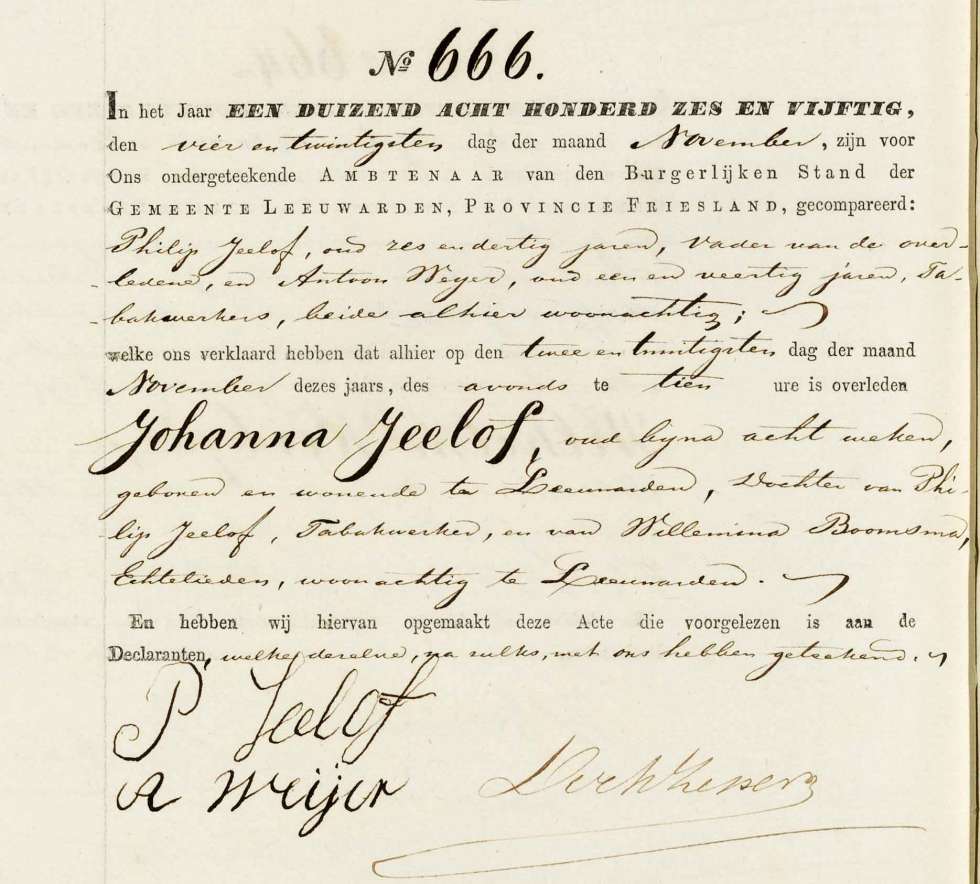 No 666.
In het Jaar EEN DUIZEND ACHT HONDERD ZES EN VIJFTIG,
den vier en twintigsten dag der maand November, zijn voor
Ons ondergeteekende AMBTENAAR van den Burgerlijken Stand der
GEMEENTE LEEUWARDEN, PROVINCIE FRIESLAND, gecompareerd:
Philip Jeelof, oud zes en dertig jaren, Vader van de over-
-ledene, en Antoon Weyer, oud een en veertig jaren, Ta-
-bakwerkers, beide alhier woonachtig;
welke ons verklaard hebben dat alhier op den twee en twintigsten dag der maand
November dezes jaars, des avonds te tien ure is overleden
Johanna Jeelof, oud byna acht weken,
geboren en wonende te Leeuwarden, Dochter van Phi-
-lip Jeelof, Tabakwerker, en van Willemina Boomsma,
Echtelieden, woonachtig te Leeuwarden.
En hebben wij hiervan opgemaakt deze Acte die voorgelezen is aan de
Declaranten, welke dezelve, na zulks, met ons hebben geteekend.
P Jeelof
A Weijer